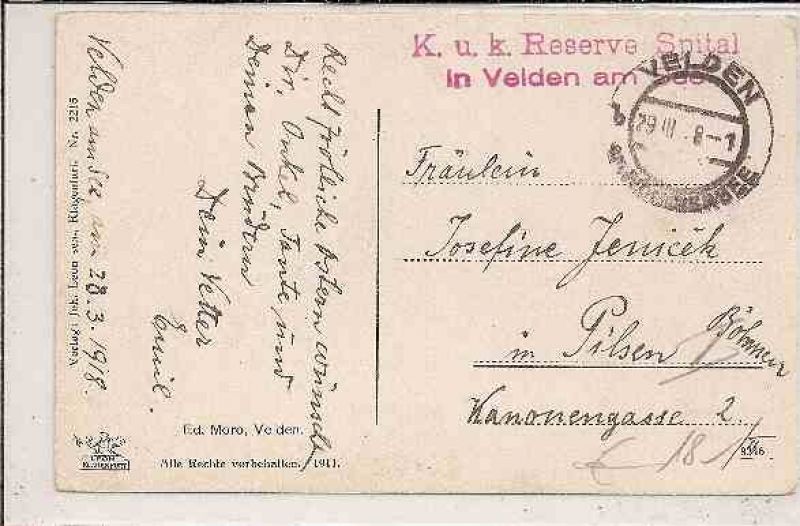 Velden am See, am 28.3.1918.
Recht fröhliche Ostern wünscht
Dir, Onkel, Tante und
Deinen Brüdern
Dein Vetter
Emil.
Verlag: Joh. Leon sen., Klagenfurt. Nr. 2216
LEON
KLAGENFURT
Ed. Moro, Velden.
Alle Rechte vorbehalten. 1911.
K. u. k. Reserve Spital
in Velden am See
VELDEN
29 III. 8-1
Fräulein
Josefine Jeníček
in Pilsen Böhmen
Kanonengasse 2
18
9346